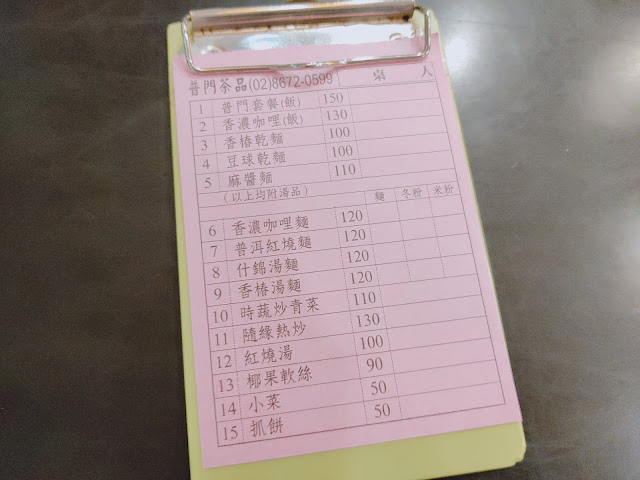 普門茶品(02)8672-0599 桌 人
1 普門套餐(飯) 150
2 香濃咖哩(飯) 130
3 香椿乾麵 100
4 豆球乾麵 100
5 麻醬麵 110
(以上均附湯品) 麵 冬粉 米粉
6 香濃咖哩麵 120
7 普洱紅燒麵 120
8 什錦湯麵 120
9 香椿湯麵 120
10 時蔬炒青菜 110
11 隨緣熱炒 130
12 紅燒湯 100
13 椰果軟絲 90
14 小菜 50
15 抓餅 50